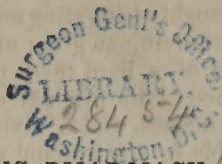 Surgeon Genl's Office
LIBRARY.
284 54
Washington, D.C.